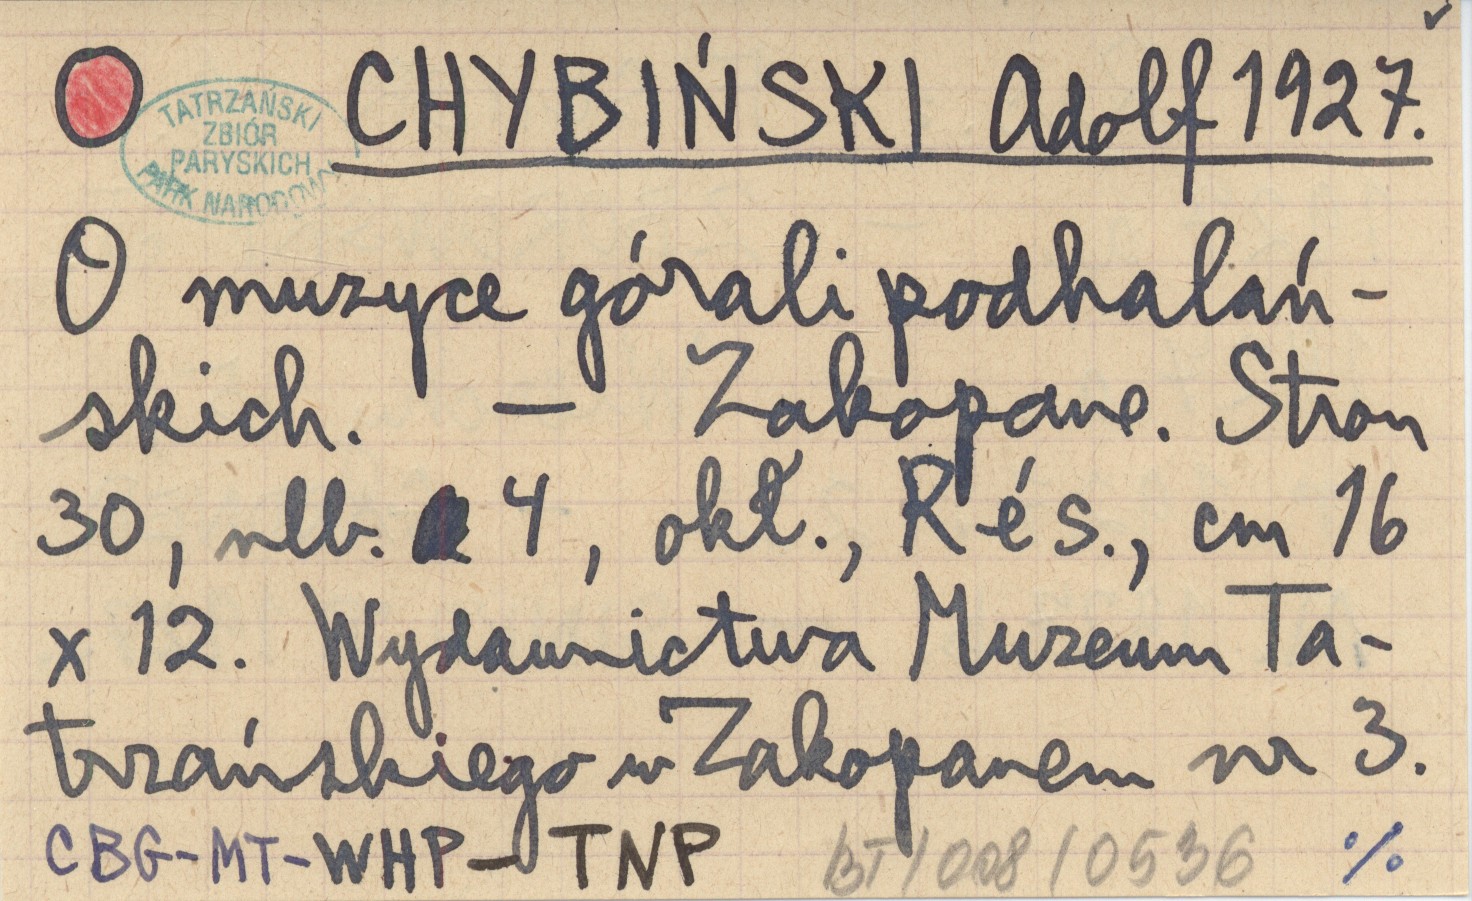 CHYBIŃSKI Adolf 1927.
TATRZAŃSKI
ZBIÓR
PARYSKICH
PARK NARODOWY
O muzyce górali podhalań-
skich. — Zakopane. Stron
30, nlb. 4, okł., Rés., cm 16
x 12. Wydawnictwa Muzeum Ta-
trzańskiego w Zakopanem nr 3.
CBG-MT-WHP-TNP BT/008/0536 %